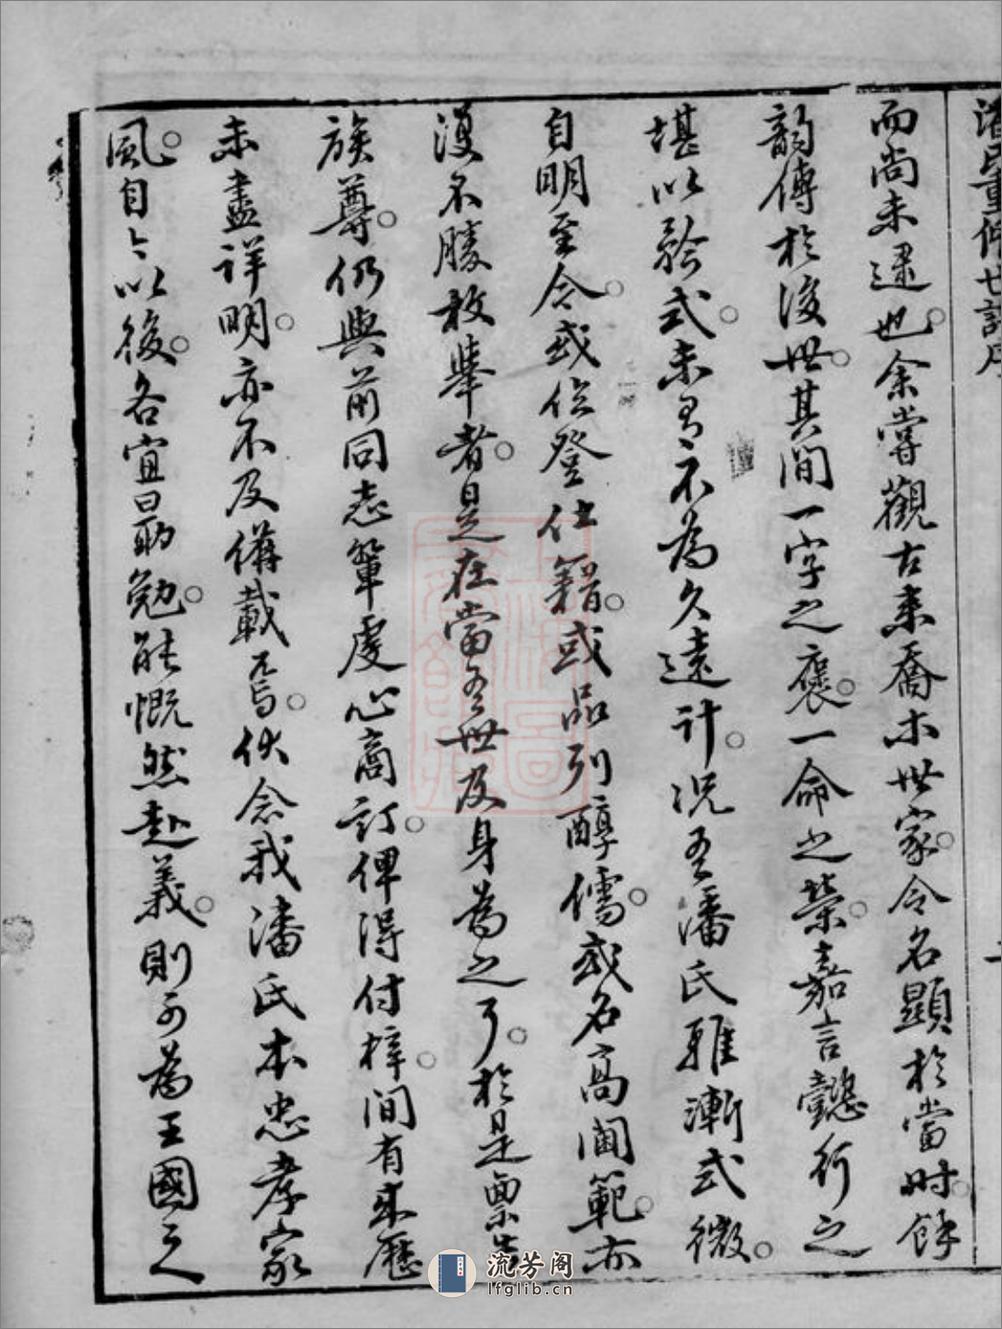 潘氏重修世譜序
而尚未逮也余嘗觀古來喬木世家令名顯於當时餘
韵傳於後世其間一字之褒一命之榮嘉言懿行之
堪以矜式未有不為久遠計况吾潘氏雖漸式微
自明至今或位登仕籍或品列醇儒或名高閫範亦
復不勝枚舉者是在當吾世及身為之了於是禀告
族尊仍與前同志輩虔心商訂俾得付梓間有來歷
未盡詳明亦不及備載焉伏念我潘氏本忠孝家
風自今以後各宜勗勉能慨然赴義則可為王國之
流芳阁
lfglib.cn